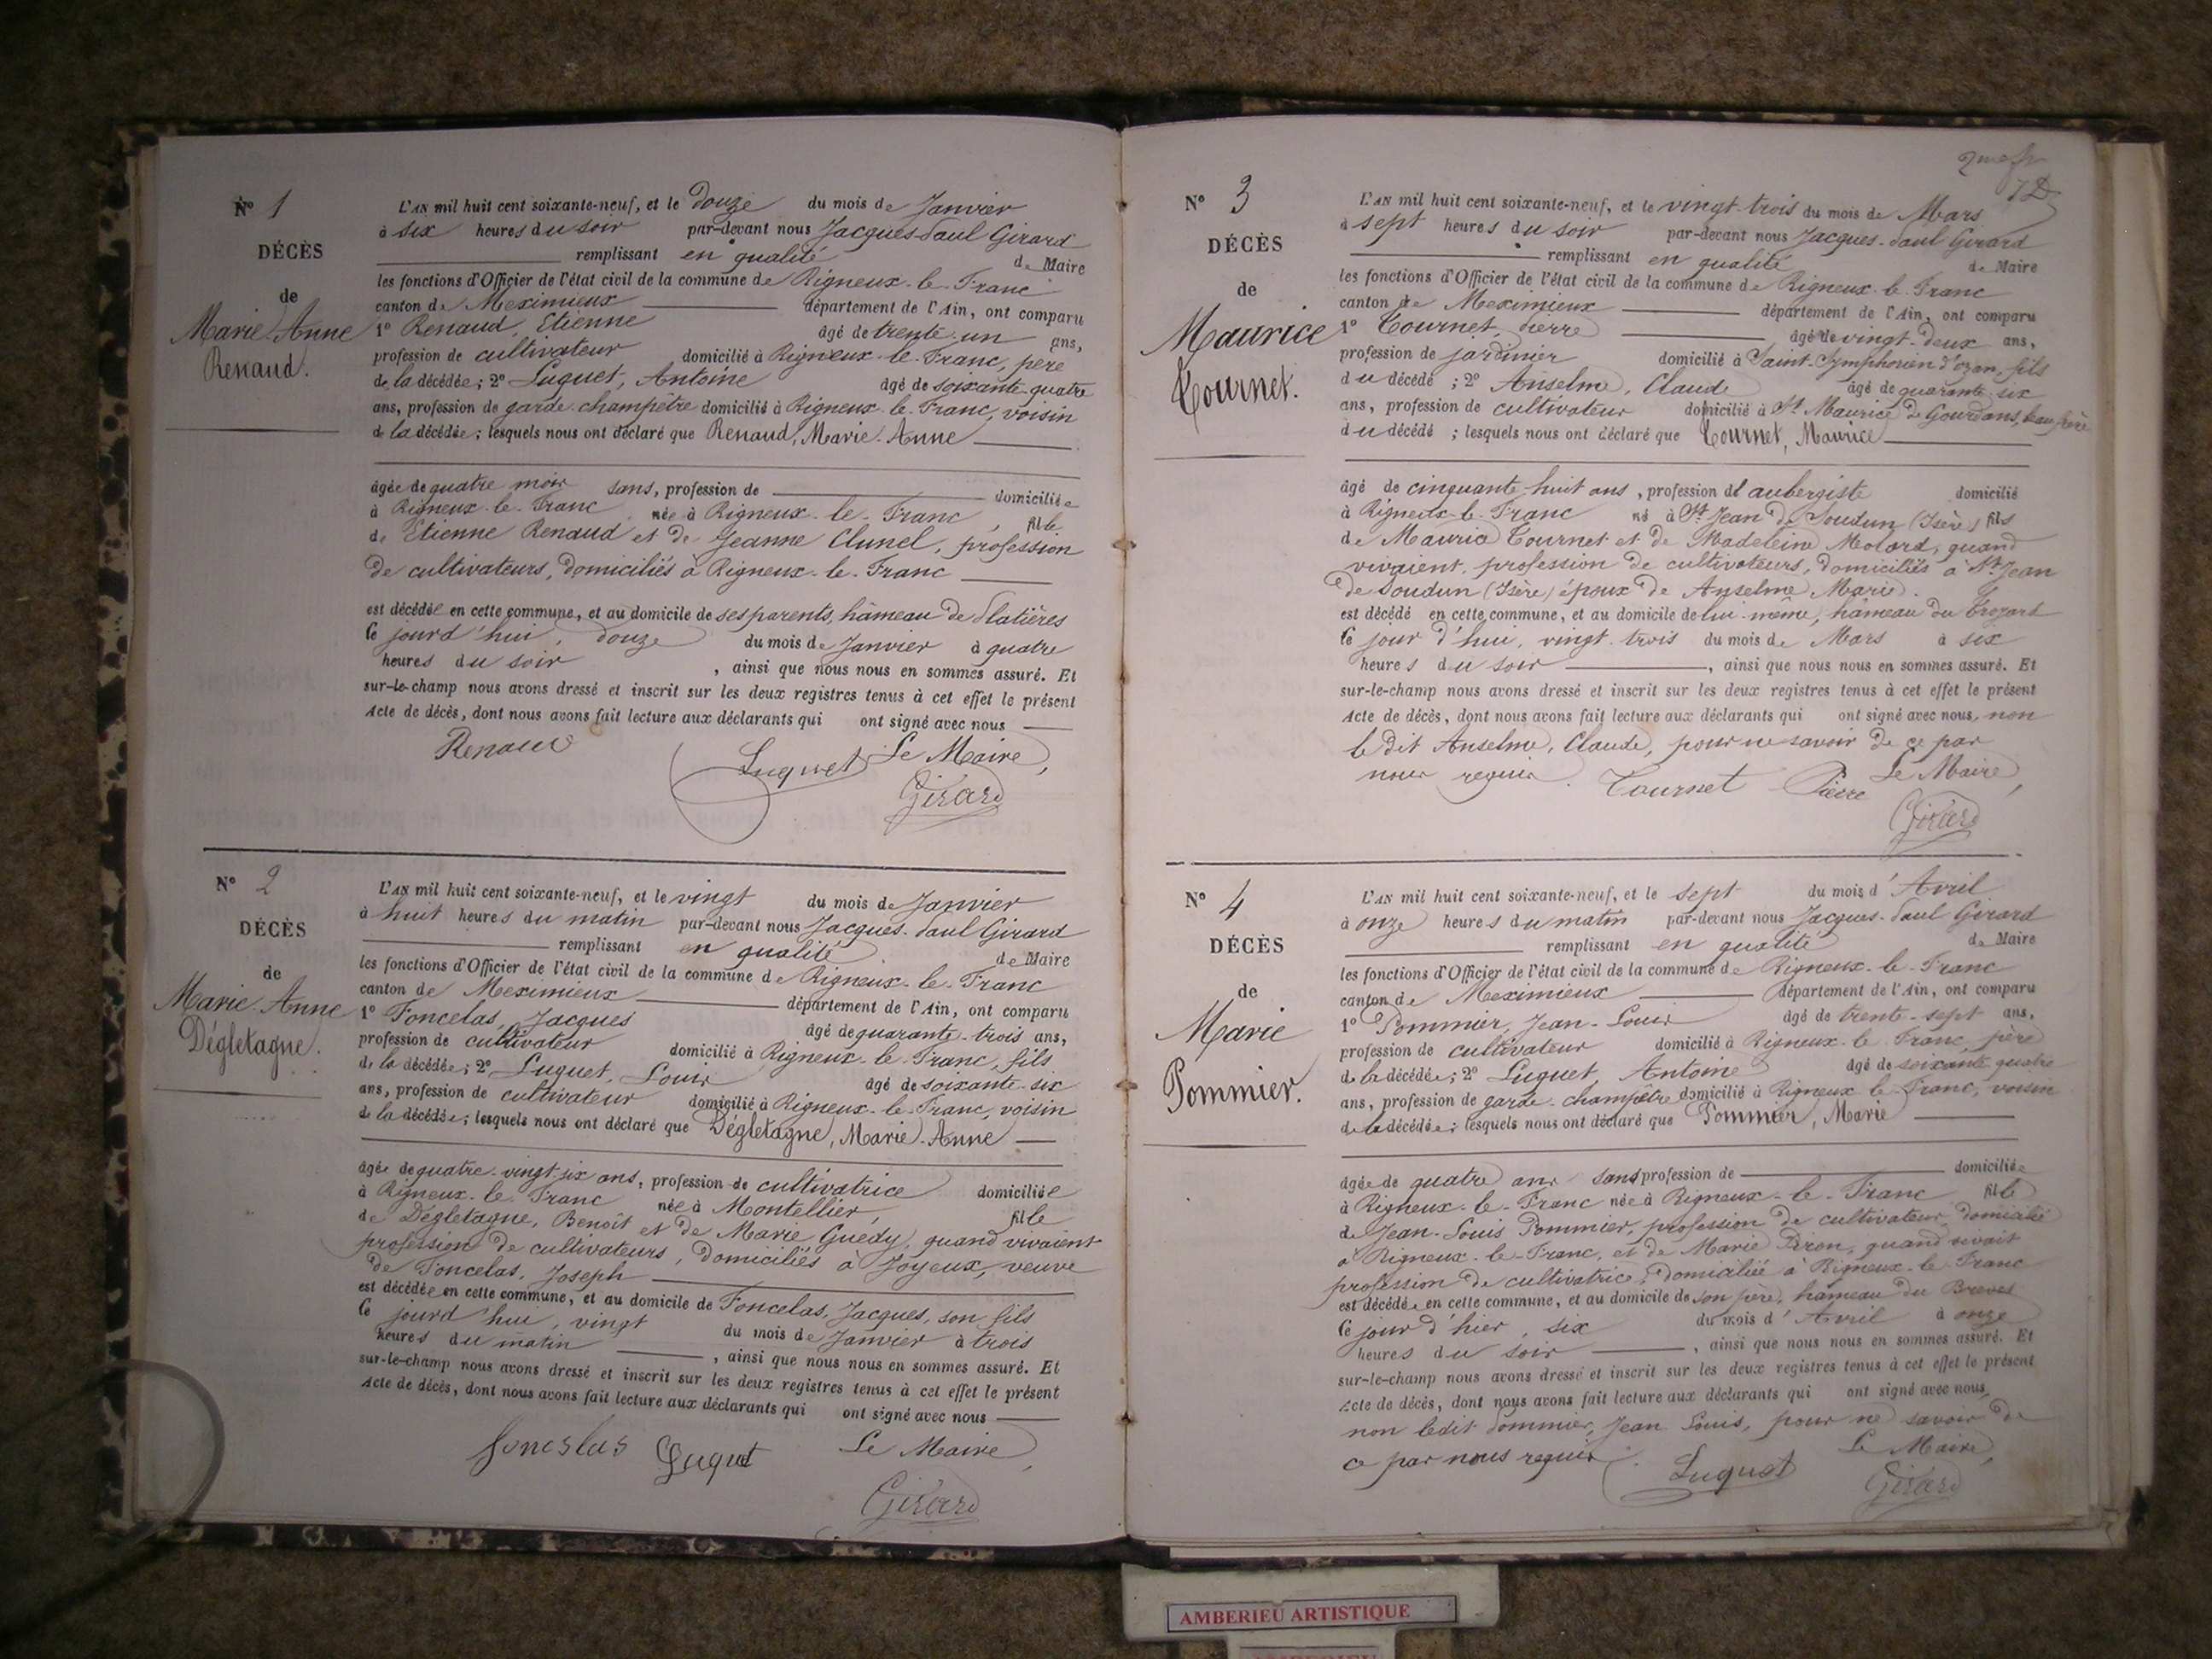 N° 1
DÉCÈS
de
Marie-Anne
Renaud.
L'AN mil huit cent soixante-neuf, et le douze du mois de Janvier
à six heures du soir par-devant nous Jacques-Paul Girard
remplissant en qualité de Maire
les fonctions d'Officier de l'état civil de la commune de Rigneux-le-Franc
canton de Meximieux département de l'Ain, ont comparu
1° Renaud, Etienne âgé de trente-un ans,
profession de cultivateur domicilié à Rigneux-le-Franc, père
de la décédée; 2° Luquet, Antoine âgé de soixante-quatre
ans, profession de garde-champêtre domicilié à Rigneux-le-Franc, voisin
de la décédée; lesquels nous ont déclaré que Renaud, Marie-Anne
âgée de quatre mois sans, profession de domiciliée
à Rigneux-le-Franc née à Rigneux-le-Franc, fille
de Etienne Renaud et de Jeanne Clunel, profession
de cultivateurs, domiciliés à Rigneux-le-Franc
est décédée en cette commune, et au domicile de ses parents, hameau de Platières
ce jourd'hui, douze du mois de Janvier à quatre
heures du soir, ainsi que nous nous en sommes assuré. Et
sur-le-champ nous avons dressé et inscrit sur les deux registres tenus à cet effet le présent
Acte de décès, dont nous avons fait lecture aux déclarants qui ont signé avec nous
Renaud Luquet Le Maire,
Girard
N° 2
DÉCÈS
de
Marie-Anne
Dégletagne.
L'AN mil huit cent soixante-neuf, et le vingt du mois de Janvier
à huit heures du matin par-devant nous Jacques-Paul Girard
remplissant en qualité de Maire
les fonctions d'Officier de l'état civil de la commune de Rigneux-le-Franc
canton de Meximieux département de l'Ain, ont comparu
1° Foncelas, Jacques âgé de quarante-trois ans,
profession de cultivateur domicilié à Rigneux-le-Franc, fils
de la décédée; 2° Luquet, Louis âgé de soixante-six
ans, profession de cultivateur domicilié à Rigneux-le-Franc, voisin
de la décédée; lesquels nous ont déclaré que Dégletagne, Marie-Anne
âgée de quatre-vingt-six ans, profession de cultivatrice domiciliée
à Rigneux-le-Franc née à Montellier, fille
de Dégletagne, Benoît et de Marie Guédy, quand vivaient
profession de cultivateurs, domiciliés à Joyeux, veuve
de Foncelas, Joseph
est décédée en cette commune, et au domicile de Foncelas, Jacques, son fils
ce jourd'hui, vingt du mois de Janvier à trois
heures du matin, ainsi que nous nous en sommes assuré. Et
sur-le-champ nous avons dressé et inscrit sur les deux registres tenus à cet effet le présent
Acte de décès, dont nous avons fait lecture aux déclarants qui ont signé avec nous
Luquet Le Maire,
Girard
N° 3
DÉCÈS
de
Maurice
Tournet.
L'AN mil huit cent soixante-neuf, et le vingt-trois du mois de Mars
à sept heures du soir par-devant nous Jacques-Paul Girard
remplissant en qualité de Maire
les fonctions d'Officier de l'état civil de la commune de Rigneux-le-Franc
canton de Meximieux département de l'Ain, ont comparu
1° Tournet, Pierre âgé de vingt-deux ans,
profession de jardinier domicilié à Saint-Symphorien d'ozon, fils
du décédé; 2° Anselme, Claude âgé de quarante-six
ans, profession de cultivateur domicilié à St Maurice de Gourdans, beau-frère
du décédé; lesquels nous ont déclaré que Tournet, Maurice
âgé de cinquante-huit ans, profession d'aubergiste domicilié
à Rigneux-le-Franc né à St Jean de Soudun (Isère) fils
de Maurice Tournet et de Madeleine Molard, quand
vivaient, profession de cultivateurs, domiciliés à St Jean
de Soudun (Isère) époux de Anselme Marie.
est décédé en cette commune, et au domicile de lui-même, hameau du
ce jour d'hui, vingt-trois du mois de Mars à six
heures du soir, ainsi que nous nous en sommes assuré. Et
sur-le-champ nous avons dressé et inscrit sur les deux registres tenus à cet effet le présent
Acte de décès, dont nous avons fait lecture aux déclarants qui ont signé avec nous, non
le dit Anselme, Claude, pour ne savoir de ce par
nous requis. Tournet Pierre Le Maire,
Girard
N° 4
DÉCÈS
de
Marie
Pommier.
L'AN mil huit cent soixante-neuf, et le sept du mois d'Avril
à onze heures du matin par-devant nous Jacques-Paul Girard
remplissant en qualité de Maire
les fonctions d'Officier de l'état civil de la commune de Rigneux-le-Franc
canton de Meximieux département de l'Ain, ont comparu
1° Pommier, Jean-Louis âgé de trente-sept ans,
profession de cultivateur domicilié à Rigneux-le-Franc, père
de la décédée; 2° Luquet, Antoine âgé de soixante-quatre
ans, profession de garde-champêtre domicilié à Rigneux-le-Franc, voisin
de la décédée; lesquels nous ont déclaré que Pommier, Marie
âgée de quatre ans sans profession de domiciliée
à Rigneux-le-Franc née à Rigneux-le-Franc fille
de Jean-Louis Pommier, profession de cultivateur, domicilié
à Rigneux-le-Franc, et de Marie Piron, quand vivait
profession de cultivatrice, domiciliée à Rigneux-le-Franc
est décédée en cette commune, et au domicile de son père, hameau du
ce jour d'hier, six du mois d'Avril à onze
heures du soir, ainsi que nous nous en sommes assuré. Et
sur-le-champ nous avons dressé et inscrit sur les deux registres tenus à cet effet le présent
Acte de décès, dont nous avons fait lecture aux déclarants qui ont signé avec nous,
non ledit Pommier, Jean Louis, pour ne savoir de
ce par nous requis. Luquet Le Maire,
Girard
AMBERIEU ARTISTIQUE